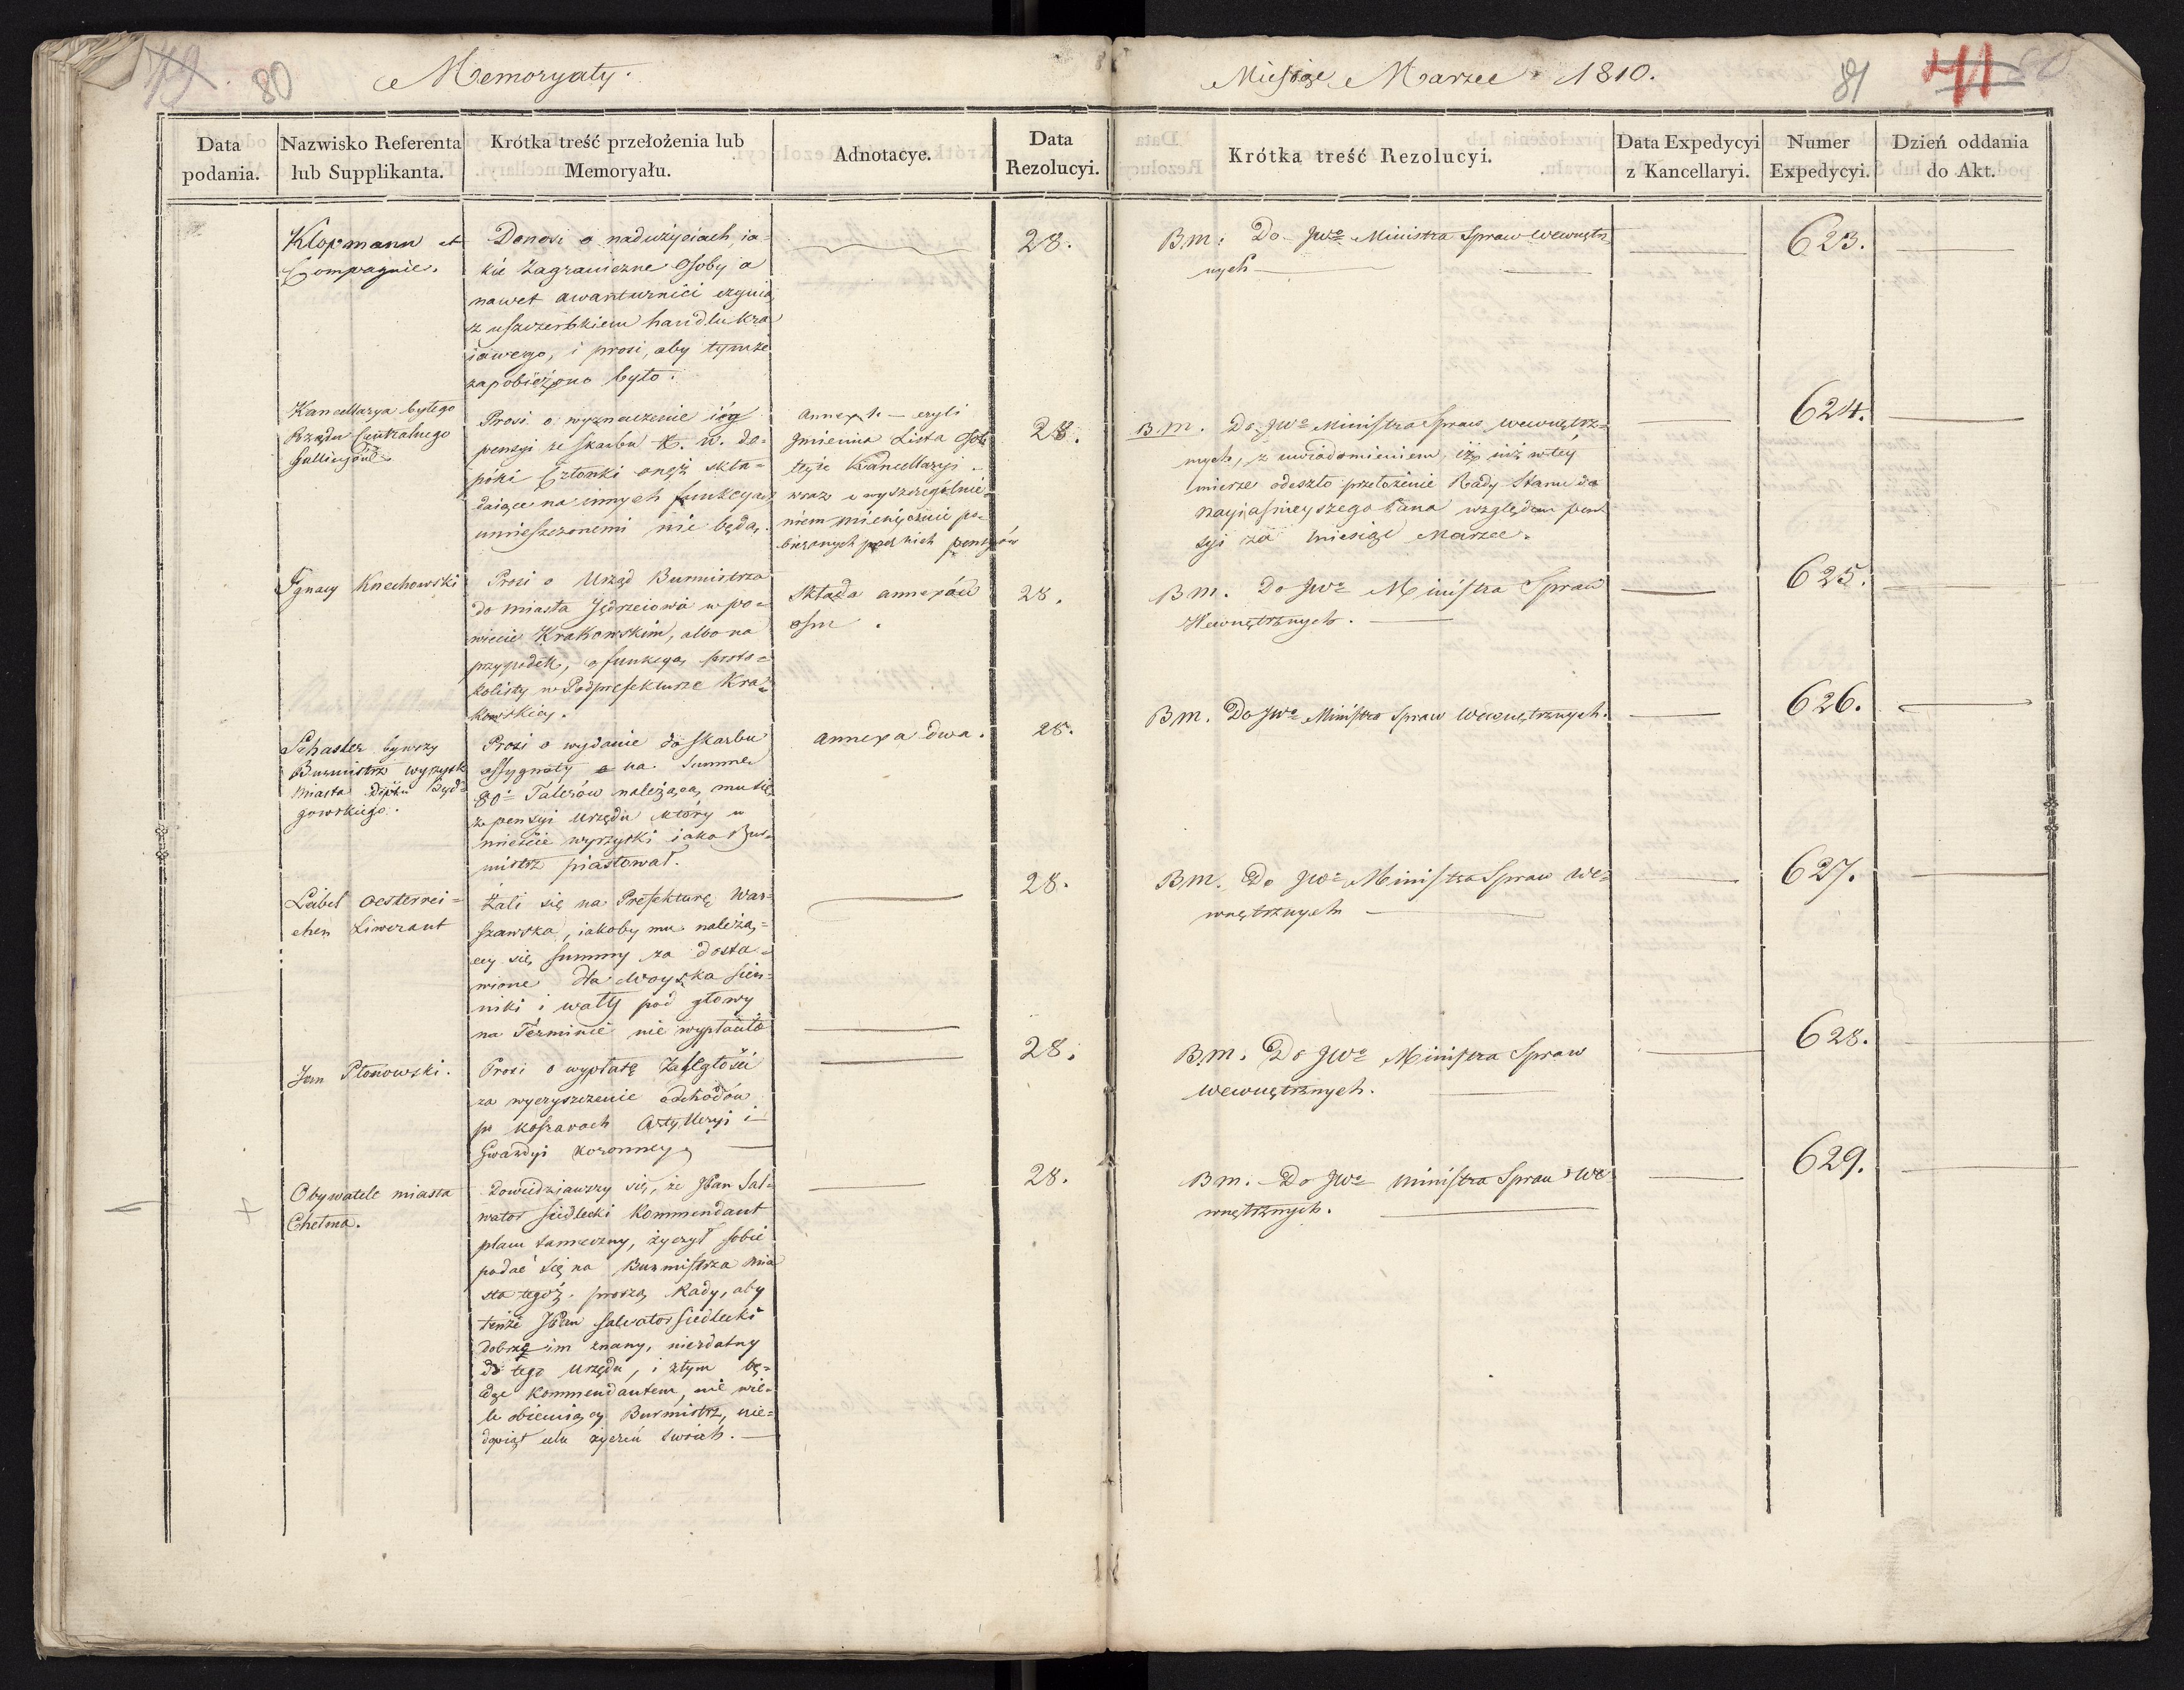 79. 80
Memoryały.
Miesiąc Marzec 1810.
81 41 80
Data podania.
Nazwisko Referenta lub Supplikanta.
Krótka treść przełożenia lub Memoryału.
Adnotacye.
Data Rezolucyi.
Krótka treść Rezolucyi.
Data Expedycyi z Kancellaryi.
Numer Expedycyi.
Dzień oddania do Akt.
Klopmann et
Compagnie.
Donosi o nadużyciach, ia-
kie Zagraniczne Osoby a
nawet awanturnici czynią
z uszczerbkiem handlu kra
iowego, i prosi, aby tymże
zapobieżono było.
28.
Bm. Do JWo Ministra Spraw Wewnętrz
nych
623.
Kancellarya byłego
Rządu Centralnego
Gallicyów
Prosi o wyznaczenie iey
pensyi ze Skarbu X. W. do-
póki Członki onęż skła-
daiące na innych funkcyach
umieszczonemi nie będą.
Annex 1. — czyli
Jmienna Lista Osób
teyże Kancellaryi
wraz z wyszczególnie-
niem miesięcznie po-
bieranych przez nich pensyów
28.
B.m. Do JWo Ministra Spraw Wewnętrz-
nych, z uwiadomieniem, iż iuż w tey
mierze odeszło przełożenie Rady Stanu do
Nayiaśnieyszego Pana względem pen-
syi za miesiąc Marzec.
624.
Ignacy Knechowski
Prosi o Urząd Burmistrza
do miasta Jędrzeiowa w po-
wiecie Krakowskim, albo na
przypadek, o funkcyą proto-
kolisty w Podprefekturze Kra-
kowskiey.
Składa annexów
ośm.
28.
Bm. Do JWo Ministra Spraw
Wewnętrznych.
625.
Schaster bywszy
Burmistrz Wyrzysk
miasta Dptu Byd-
goskiego.
Prosi o wydanie do Skarbu
assygnaty na Summe
80 Talerów należącą mu się
z pensyi Urzędu który w
mieście wyrzyski iako Bur-
mistrz piastował.
annexa dwa.
28.
Bm. Do JWo Ministra Spraw Wewnętrznych.
626.
Leibel Oesterrei-
cher Liwerant
Żali się na Prefekturę War-
szawską, iakoby mu należą-
cey się summy za dosta-
wione dla Woyska sien-
niki i wałki pod głowy
na Terminie nie wypłaciło
28.
Bm. Do JWo Ministra Spraw We-
wnętrznych
627.
Jan Płonowski.
Prosi o wypłatę Zaległości
za wyczyszczenie odchodów
po koszarach Artylleryi i
Gwardyi koronney
28.
B.m. Do JWo Ministra Spraw
Wewnętrznych.
628.
Obywatele miasta
Chełma.
Dowiedziawszy się, że JPan Sal-
wator Siedlecki Kommendant
placu tameczny, życzył sobie
podać się na Burmistrza mia
sta tegoż. proszą Rady, aby
tenże JPan Salwator Siedlecki
dobrze im znany, niezdatny
do tego Urzędu, i złym bę-
dąc Kommendantem, nie wie-
le obiecuiący Burmistrz, nie-
dopiął celu życzeń swoich.
28.
Bm. Do JWo Ministra Spraw We
wnętrznych.
629.